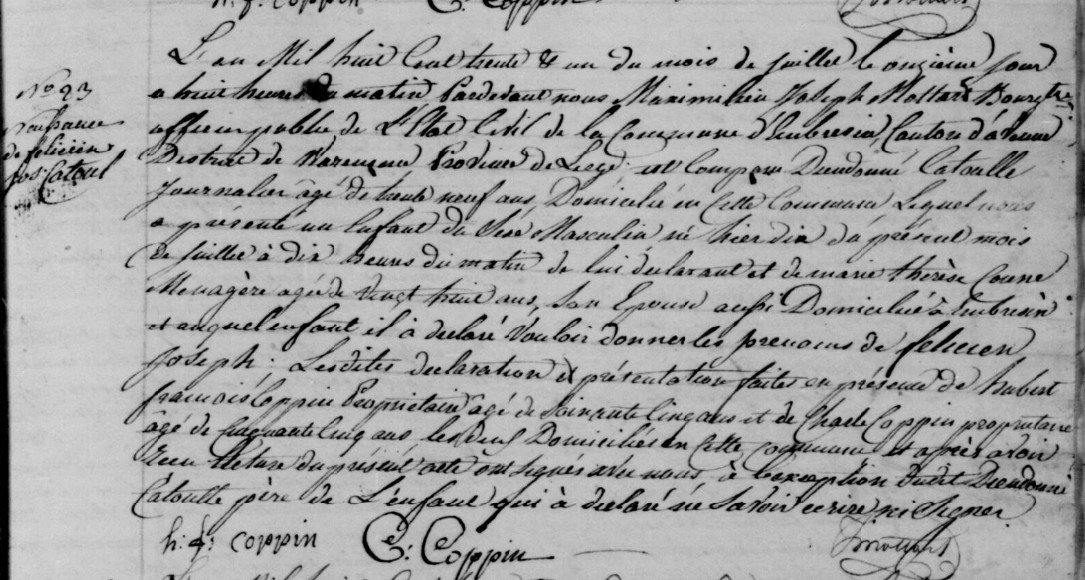 h. f. coppin C: Coppin
L'an Mil huit Cent trente & un du mois de juillet le onzième jour
a huit heures du matin Pardevant nous Maximilien Joseph Mottart Bourgtre
officier public de L'Etat Civil de la Commune d'Embresin, Canton d'avenne
District de Waremme Province de Liege est Comparu Dieudonné Catoulle
Journalier âgé de trente neuf ans, Domicilié en Cette Commune Lequel nous
a présenté un Enfant du Sexe Masculin né hier dix du présent mois
de juillet à dix heures du matin de lui declarant et de marie thérèse Coune
Menagère agée de vingt huit ans, Son Epouse aussi Domiciliée à Embresin
et auquel enfant il à declaré Vouloir donner les prenoms de felicien
Joseph. Lesdites declaration & présentation faites en présence de hubert
francois Coppin Propriétaire âgé de Soixante Cinq ans et de Charle Coppin propriétaire
âgé de Cinquante cinq ans, les deux Domiciliés en Cette commune et après avoir
lecture du présent acte ont signés avec nous, à l'exception dudit Dieudonné
Catoulle père de L'enfant qui à declaré ne Savoir ecrire ni Signer.
h. f. coppin C: Coppin
No 93
Naissance
de felicien
jos Catoul